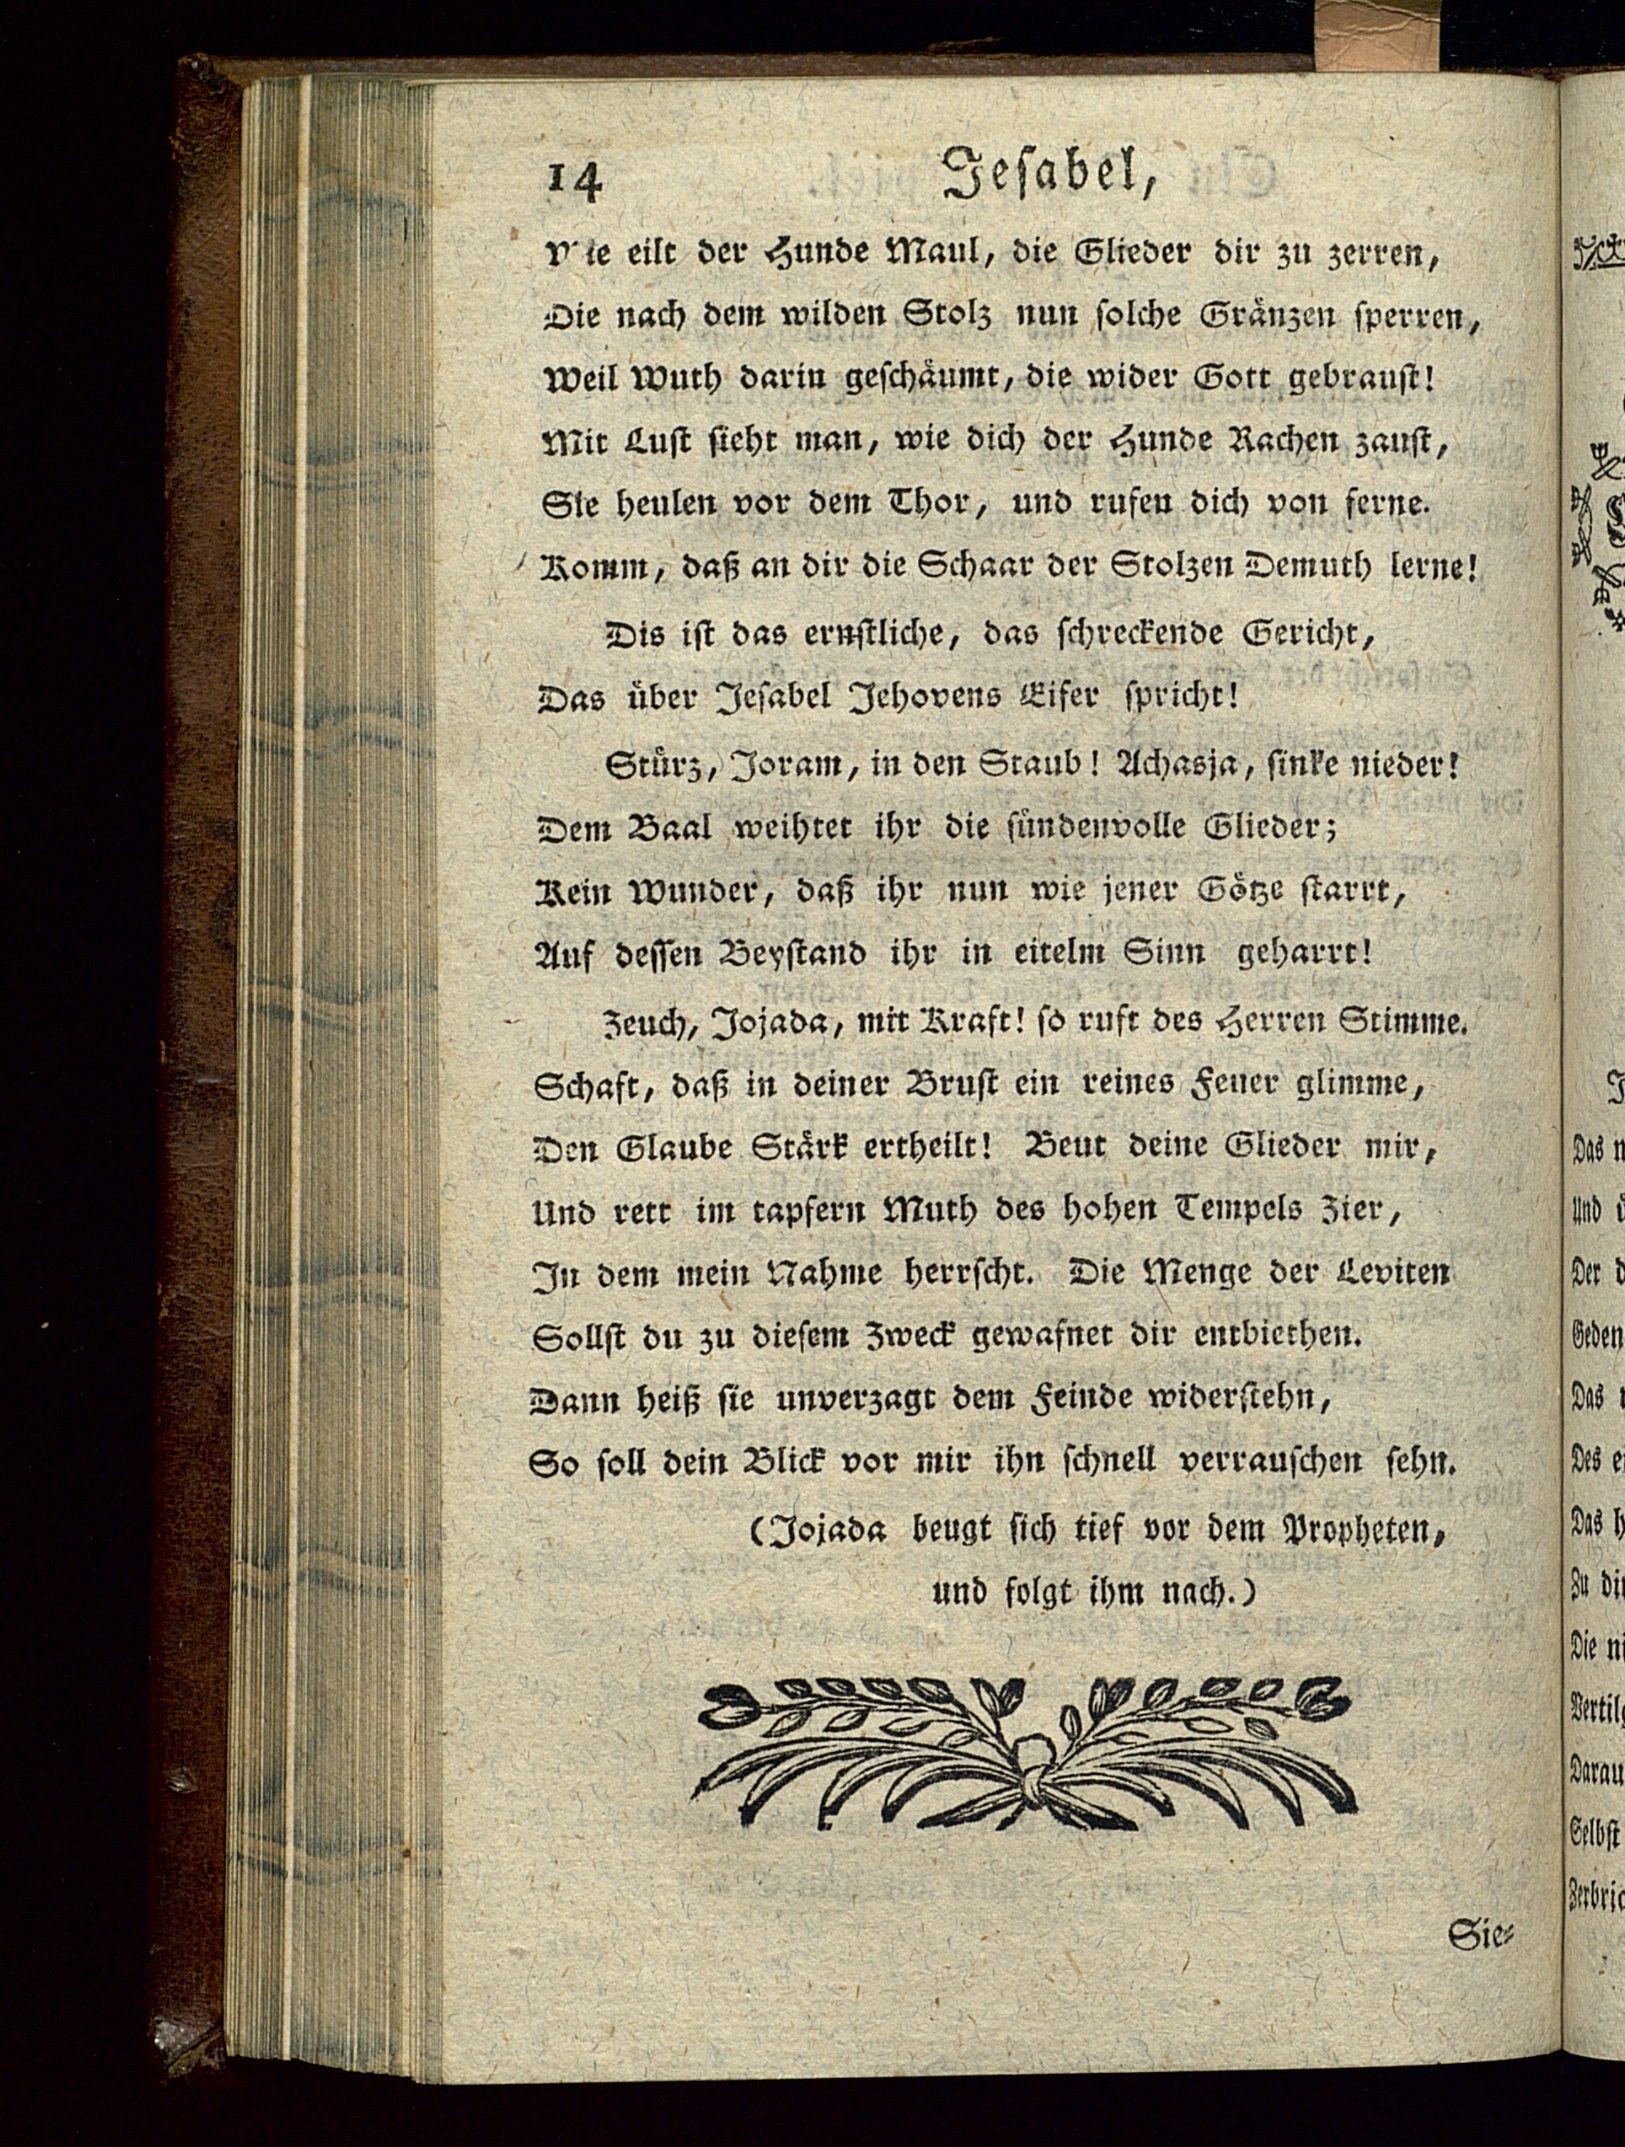 14 Jesabel,
Wie eilt der Hunde Maul, die Glieder dir zu zerren,
Die nach dem wilden Stolz nun solche Gränzen sperren,
Weil Wuth darin geschäumt, die wider Gott gebraust!
Mit Lust sieht man, wie dich der Hunde Rachen zaust,
Sie heulen vor dem Thor, und rufen dich von ferne.
Komm, daß an dir die Schaar der Stolzen Demuth lerne!
Dis ist das ernstliche, das schreckende Gericht,
Das über Jesabel Jehovens Eifer spricht!
Stürz, Joram, in den Staub! Achasja, sinke nieder!
Dem Baal weihtet ihr die sündenvolle Glieder;
Kein Wunder, daß ihr nun wie jener Götze starrt,
Auf dessen Beystand ihr in eitelm Sinn geharrt!
Zeuch, Jojada, mit Kraft! so ruft des Herren Stimme.
Schaft, daß in deiner Brust ein reines Feuer glimme,
Den Glaube Stärk ertheilt! Beut deine Glieder mir,
Und rett im tapfern Muth des hohen Tempels Zier,
In dem mein Nahme herrscht. Die Menge der Leviten
Sollst du zu diesem Zweck gewafnet dir entbiethen.
Dann heiß sie unverzagt dem Feinde widerstehn,
So soll dein Blick vor mir ihn schnell verrauschen sehn.
(Jojada beugt sich tief vor dem Propheten,
und folgt ihm nach.)
Sie-
Das
Und
Der
Das
Des
Das
Zu
Die
Selbst